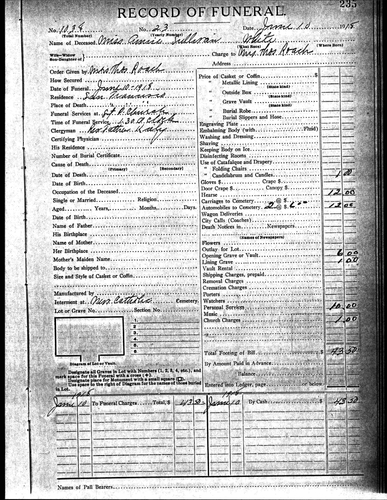 RECORD OF FUNERAL. 235
No. 1038 No. 23 Date June 10 1918
(Total Number) (Yearly Number)
Name of Deceased Miss Annie Sullivan White
(What Race) (Where Born)
Charge to Mrs Thos. Roach
Address
Order Given by Mrs Thos Roach
How Secured
Date of Funeral June 10-1918
Place of Death
Funeral Services at
Time of Funeral Service 1:30 O'Clock
Clergyman Rev Father
Certifying Physician
His Residence
Number of Burial Certificate
Cause of Death
(Primary) (Secondary)
Date of Death
Date of Birth
Occupation of the Deceased
Single or Married Religion
Aged Years, Months, Days.
Date of Birth
Name of Father
His Birthplace
Name of Mother
Her Birthplace
Mother's Maiden Name
Body to be shipped to
Size and Style of Casket or Coffin
Manufactured by
Interment at New Catholic Cemetery.
Lot or Grave No. Section No.
1
2
3
4
5
6
Diagram of Lot or Vault.
Designate all Graves in Lot with Numbers (1, 2, 3, 4, etc.), and mark space for this Funeral with a cross (+)
Designate place for Monument with a small square
Use space to the right of Diagram for names of those buried in Lot.
Price of Casket or Coffin
" Metallic Lining
(State kind)
" Outside Box
(State kind)
" Grave Vault
(State kind)
" Burial Robe
" Burial Slippers and Hose
Engraving Plate
Embalming Body (with Fluid)
Washing and Dressing
Shaving
Keeping Body on Ice
Disinfecting Rooms
Use of Catafalque and Drapery
" Folding Chairs
" Candelabrum and Candles 1.00
Gloves $ Crape $
Door Crape $ Canopy $
Hearse 12.00
Carriages to Cemetery @ $
Automobiles to Cemetery 2 @ $ 6.00 12.00
Wagon Deliveries
City Calls (Coaches)
Death Notices in Newspapers
(Names of Newspapers)
Flowers
Outlay for Lot
Opening Grave or Vault 6.00
Lining Grave 1.00
Vault Rental
Shipping Charges, prepaid
Removal Charges
Cremation Charges
Porters
Watchers
Personal Services 10.00
Music
Church Charges 1.00
Total Footing of Bill 43.50
By Amount Paid in Advance
Balance
Entered into Ledger, page or below.
1918
June 10 To Funeral Charges Total, $ 43.50
June 10 By Cash 43.50
Names of Pall Bearers